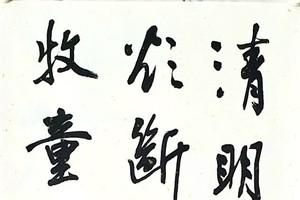 清明
欲斷
牧童